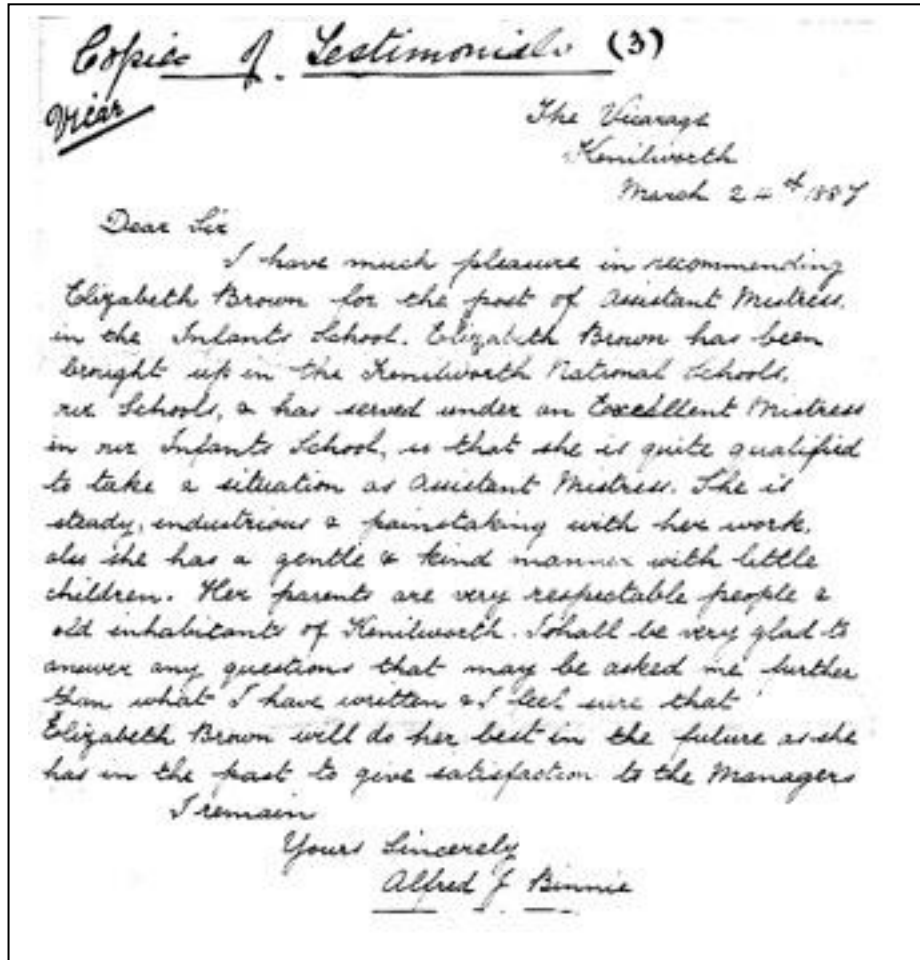 Copies of Testimonials (3)
Vicar
The Vicarage
Kenilworth
March 24th 1887
Dear Sir
I have much pleasure in recommending
Elizabeth Brown for the post of Assistant Mistress,
in the Infants School. Elizabeth Brown has been
brought up in the Kenilworth National Schools,
our Schools, & has served under an Excellent Mistress
in our Infants School, so that she is quite qualified
to take a situation as Assistant Mistress. She is
steady, industrious & painstaking with her work,
also she has a gentle & kind manner with little
children. Her parents are very respectable people &
old inhabitants of Kenilworth. I shall be very glad to
answer any questions that may be asked me further
than what I have written & I feel sure that
Elizabeth Brown will do her best in the future as she
has in the past to give satisfaction to the Managers
I remain
Yours Sincerely
Alfred J Binnie